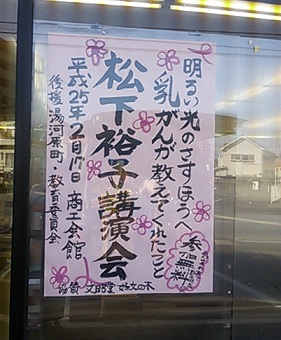 明るい光のさすほうへ
乳がんが教えてくれたこと
参加無料
松下裕子講演会
平成25年2月17日 商工会館
後援 湯河原町・教育委員会
協賛 文昭堂